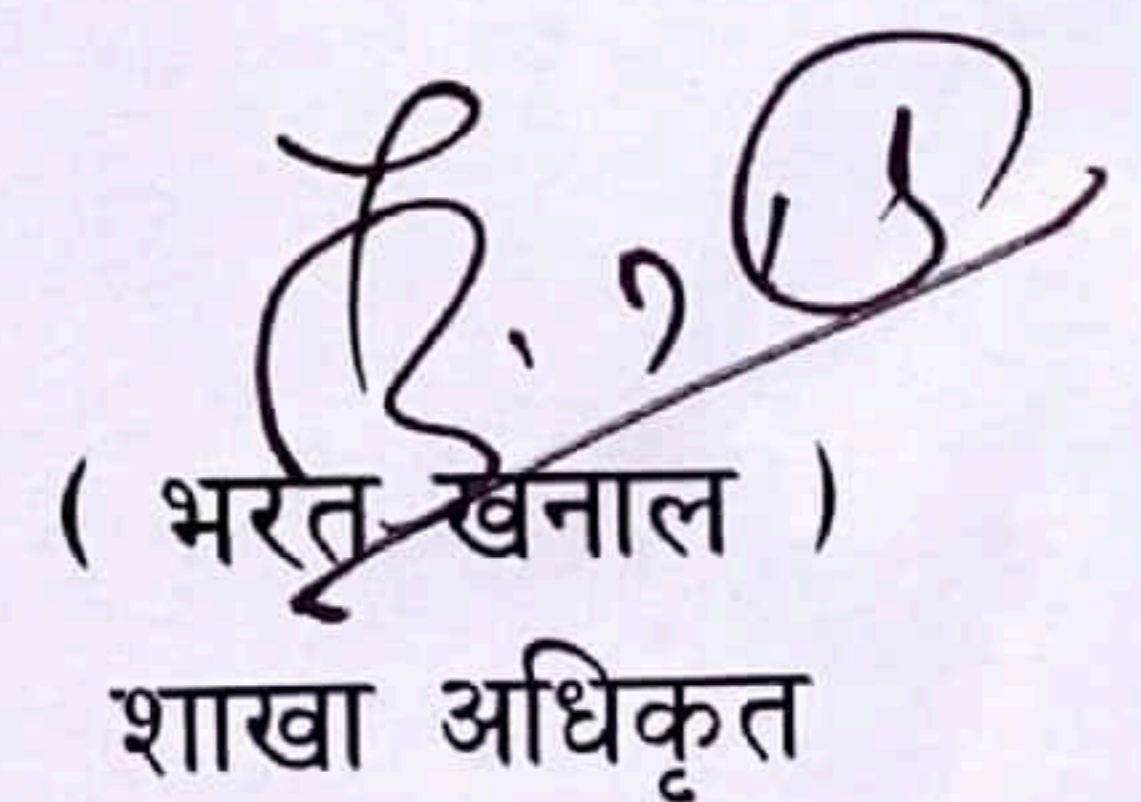 ( भरत खनाल )
शाखा अधिकृत